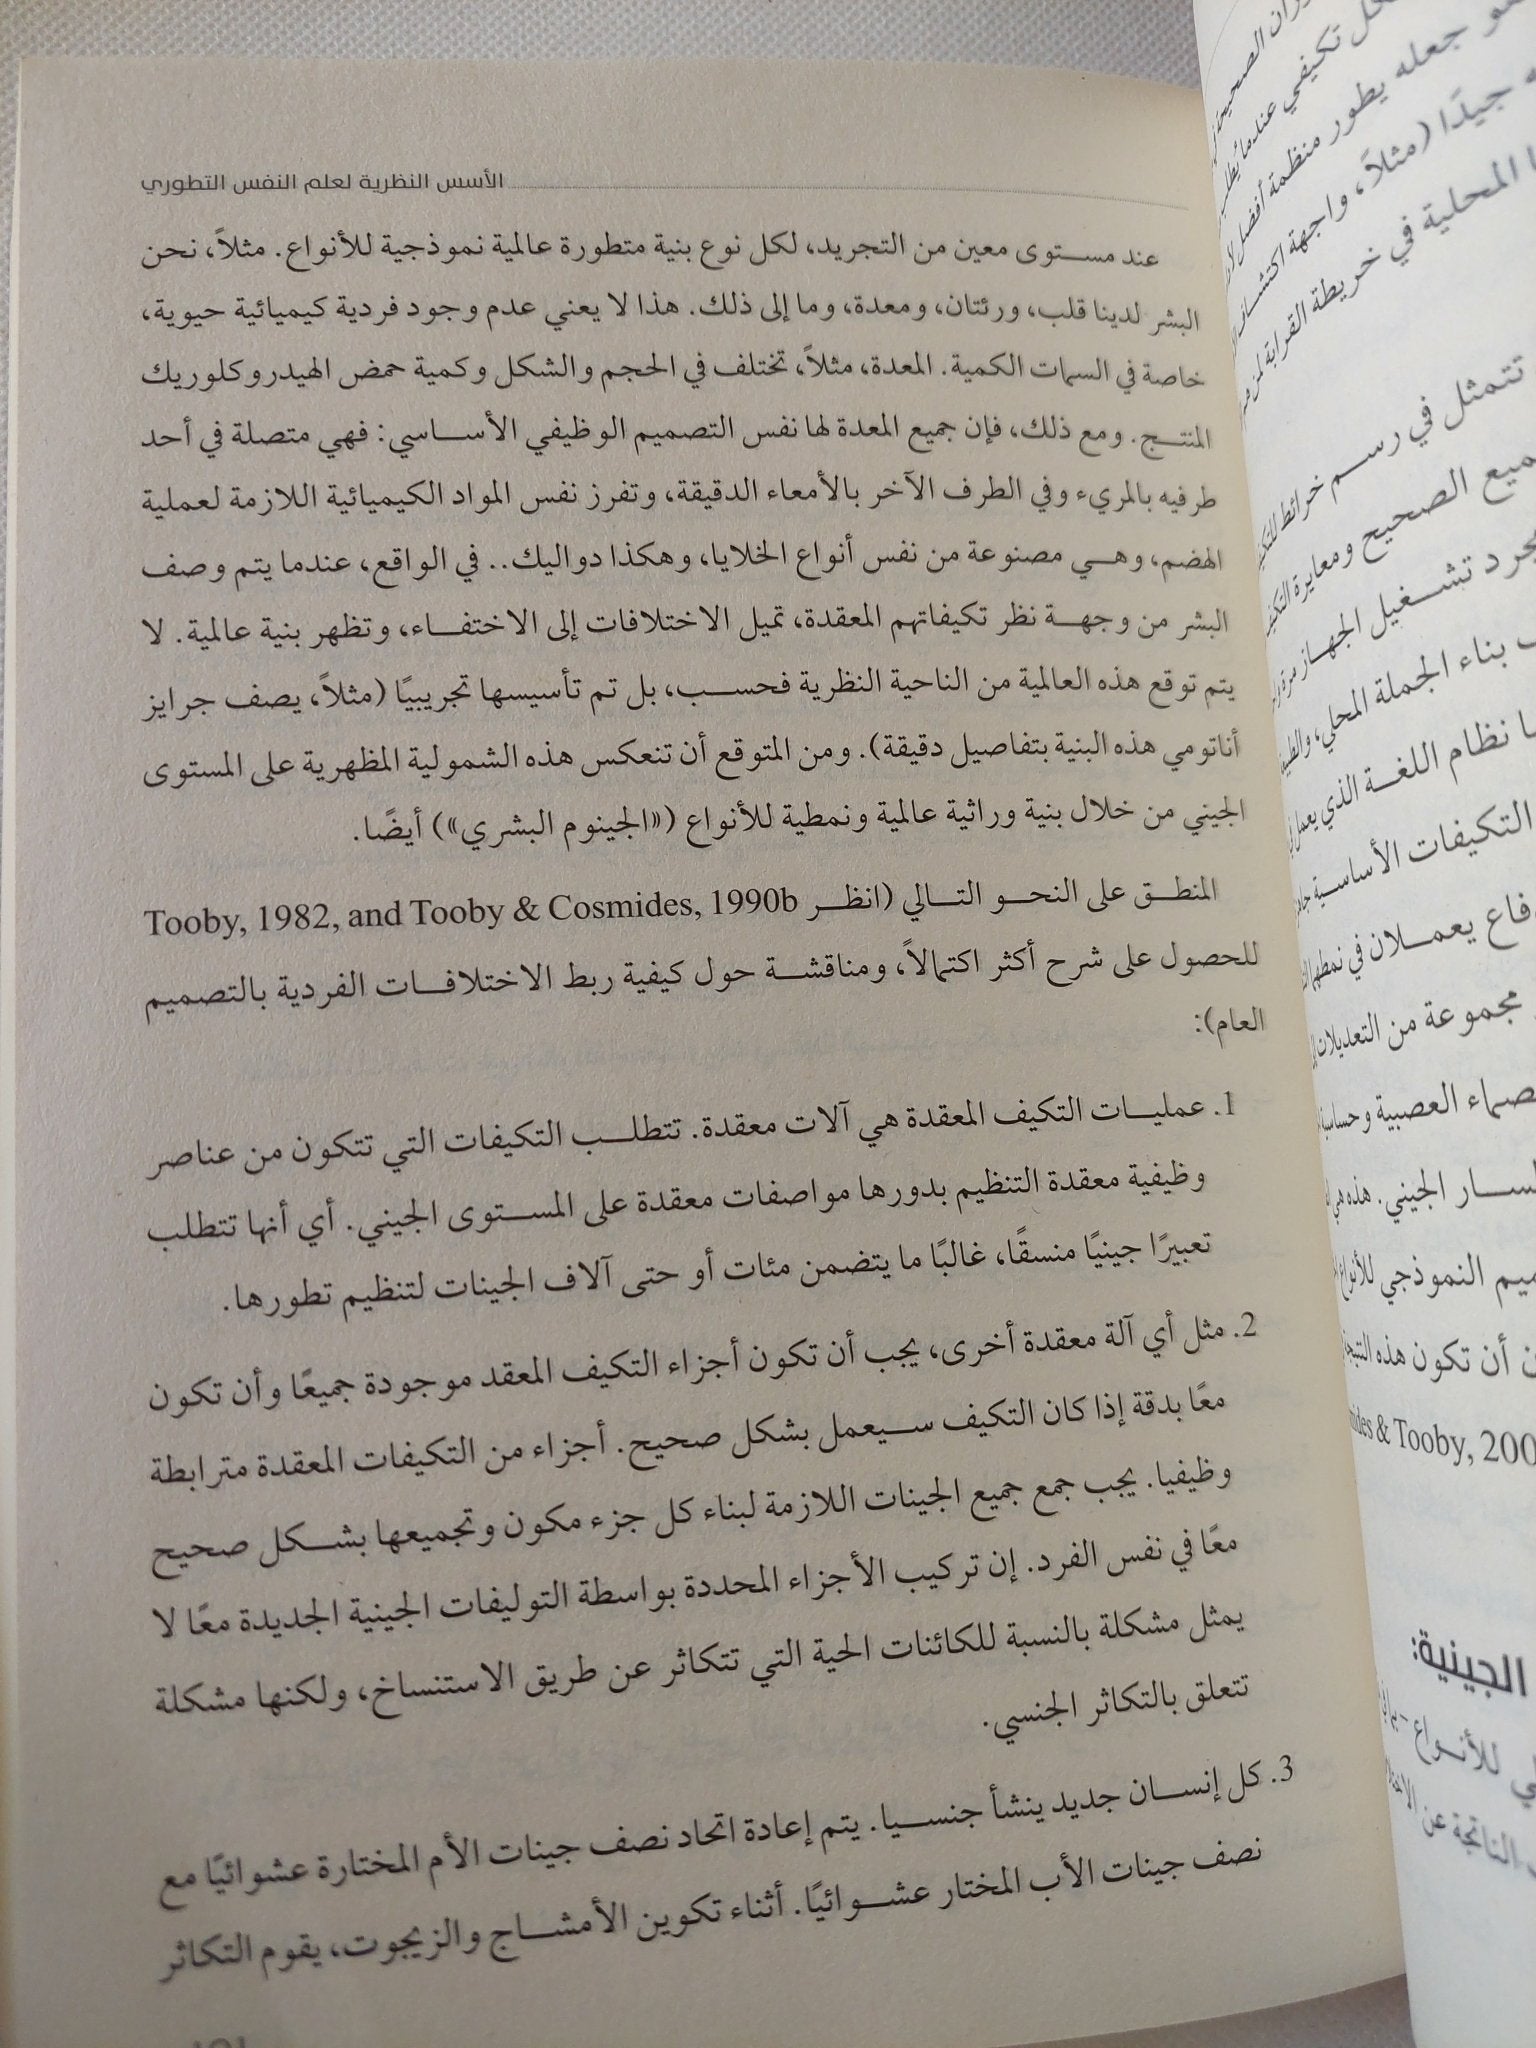 الأسس النظرية لعلم النفس التطوري
عند مستوى معين من التجريد، لكل نوع بنية متطورة عالمية نموذجية للأنواع. مثلاً، نحن
البشر لدينا قلب، ورئتان، ومعدة، وما إلى ذلك. هذا لا يعني عدم وجود فردية كيميائية حيوية،
خاصة في السمات الكمية. المعدة، مثلاً، تختلف في الحجم والشكل وكمية حمض الهيدروكلوريك
المنتج. ومع ذلك، فإن جميع المعدة لها نفس التصميم الوظيفي الأساسي: فهي متصلة في أحد
طرفيه بالمريء وفي الطرف الآخر بالأمعاء الدقيقة، وتفرز نفس المواد الكيميائية اللازمة لعملية
الهضم، وهي مصنوعة من نفس أنواع الخلايا، وهكذا دواليك.. في الواقع، عندما يتم وصف
البشر من وجهة نظر تكيفاتهم المعقدة، تميل الاختلافات إلى الاختفاء، وتظهر بنية عالمية. لا
يتم توقع هذه العالمية من الناحية النظرية فحسب، بل تم تأسيسها تجريبيًا (مثلاً، يصف جرايز
أناتومي هذه البنية بتفاصيل دقيقة). ومن المتوقع أن تنعكس هذه الشمولية المظهرية على المستوى
الجيني من خلال بنية وراثية عالمية ونمطية للأنواع («الجينوم البشري») أيضًا.
المنطق على النحو التالي (انظر Tooby, 1982, and Tooby & Cosmides, 1990b
للحصول على شرح أكثر اكتمالاً، ومناقشة حول كيفية ربط الاختلافات الفردية بالتصميم
العام):
1. عمليات التكيف المعقدة هي آلات معقدة. تتطلب التكيفات التي تتكون من عناصر
وظيفية معقدة التنظيم بدورها مواصفات معقدة على المستوى الجيني. أي أنها تتطلب
تعبيرًا جينيًا منسقًا، غالبًا ما يتضمن مئات أو حتى آلاف الجينات لتنظيم تطورها.
2. مثل أي آلة معقدة أخرى، يجب أن تكون أجزاء التكيف المعقد موجودة جميعًا وأن تكون
معًا بدقة إذا كان التكيف سيعمل بشكل صحيح. أجزاء من التكيفات المعقدة مترابطة
وظيفيا. يجب جمع جميع الجينات اللازمة لبناء كل جزء مكون وتجميعها بشكل صحيح
معًا في نفس الفرد. إن تركيب الأجزاء المحددة بواسطة التوليفات الجينية الجديدة معًا لا
يمثل مشكلة بالنسبة للكائنات الحية التي تتكاثر عن طريق الاستنساخ، ولكنها مشكلة
تتعلق بالتكاثر الجنسي.
3. كل إنسان جديد ينشأ جنسيا. يتم إعادة اتحاد نصف جينات الأم المختارة عشوائيًا مع
نصف جينات الأب المختار عشوائيًا. أثناء تكوين الأمشاج والزيجوت، يقوم التكاثر
تكيفي عندما
جعله يطور منظمة أفضل
جيدًا (مثلاً، واجهة
المحلية في خريطة القرابة
تتمثل في رسم خرائط
الصحيح ومعايرة
تشغيل الجهاز
بناء الجملة المحلي،
نظام اللغة الذي يعمل
التكيفات الأساسية
يعملان في
مجموعة من التعديلات
العصبية
الجيني. هذه هي
النموذجي للأنواع
أن تكون هذه
& Tooby, 200
الجينية: